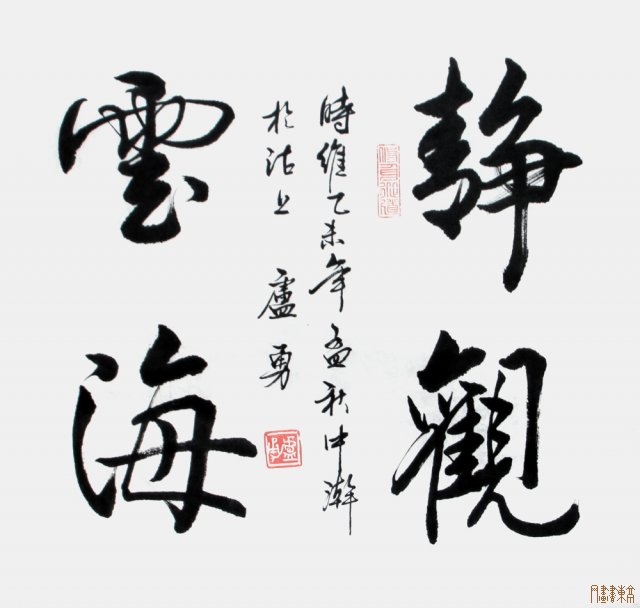 靜觀
雲海
時維乙未年孟秋中澣
於沽上 盧勇